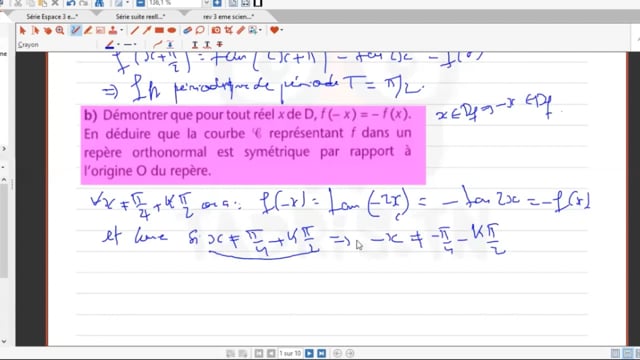 Série Espace 3 e...
Série suite reell...
rev 3 eme scien...
Crayon
f(x+π/2) = tan(2x+π) = tan 2x = f(x)
=> f périodique de période T = π/2.
b) Démontrer que pour tout réel x de D, f(−x) = − f(x).
En déduire que la courbe 𝒞 représentant f dans un
repère orthonormal est symétrique par rapport à
l'origine O du repère.
x ∈ Df => -x ∈ Df.
∀x ≠ π/4 + Kπ/2 on a: f(-x) = tan(-2x) = - tan 2x = -f(x)
et si x ≠ π/4 + Kπ/2 => -x ≠ -π/4 - Kπ/2
1 sur 10